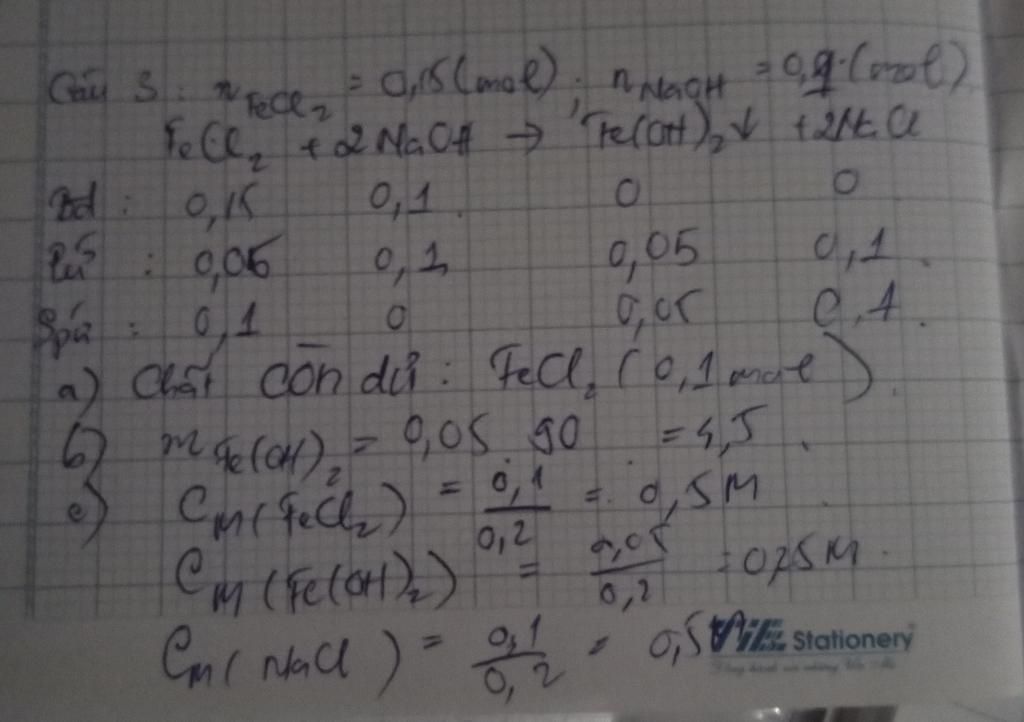 Câu 3: nFeCl₂ = 0,15 (mol); nNaOH = 0,1 (mol)
FeCl₂ + 2NaOH → Fe(OH)₂↓ + 2NaCl
Bđ : 0,15 0,1 0 0
Pứ : 0,05 0,1 0,05 0,1
Spứ : 0,1 0 0,05 0,1
a) Chất còn dư: FeCl₂ (0,1 mol)
b) mFe(OH)₂ = 0,05 . 90 = 4,5
c) CM(FeCl₂) = 0,1/0,2 = 0,5M
CM(Fe(OH)₂) = 0,05/0,2 = 0,25M
CM(NaCl) = 0,1/0,2 = 0,5
Stationery